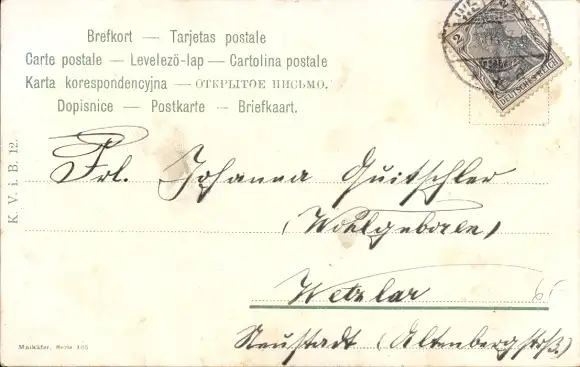 Brefkort — Tarjetas postale
Carte postale — Levelezö-lap — Cartolina postale
Karta korespondencyjna — ОТКРЫТОЕ ПИСЬМО.
Dopisnice — Postkarte — Briefkaart.
K. V. i. B. 12.
2 2
DEUTSCHES REICH
Frl. Johanna Quitschler
(Wohlgeboren)
Wetzlar
Neustadt (Altenbergstrß.)
Maikäfer, Serie 105